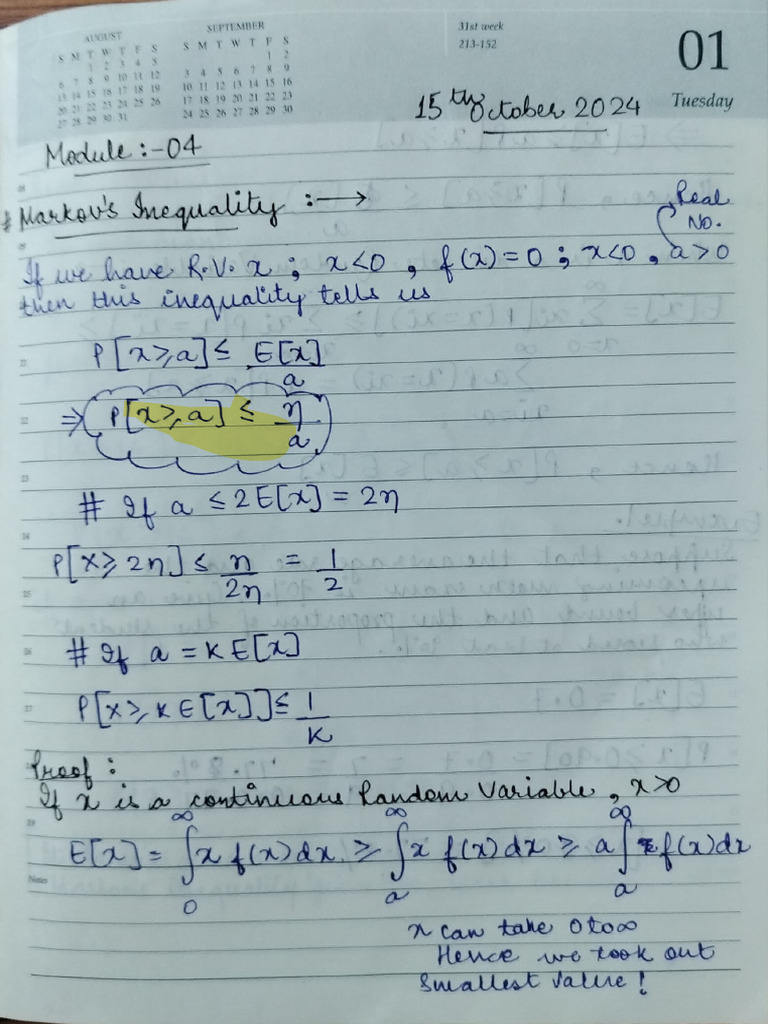 AUGUST
S M T W T F S
1 2 3 4 5
6 7 8 9 10 11 12
13 14 15 16 17 18 19
20 21 22 23 24 25 26
27 28 29 30 31
SEPTEMBER
S M T W T F S
1 2
3 4 5 6 7 8 9
10 11 12 13 14 15 16
17 18 19 20 21 22 23
24 25 26 27 28 29 30
31st week
213-152
01
Tuesday
15th October 2024
Module :-04
# Markov's Inequality :→
Real
No.
If we have R.V. x ; x<0 , f(x)=0 ; x<0 , a>0
then this inequality tells us
P[x≥a] ≤ E[x]/a
⇒ P[x≥a] ≤ η/a
# If a ≤ 2E[x] = 2η
P[x≥2η] ≤ η/2η = 1/2
# If a = K E[x]
P[x≥K E[x]] ≤ 1/K
Proof :
If x is a continuous Random Variable , x>0
E[x] = ∫₀^∞ x f(x)dx ≥ ∫ₐ^∞ x f(x)dx ≥ a∫ₐ^∞ f(x)dx
Notes
x can take 0 to ∞
Hence we took out
smallest value !